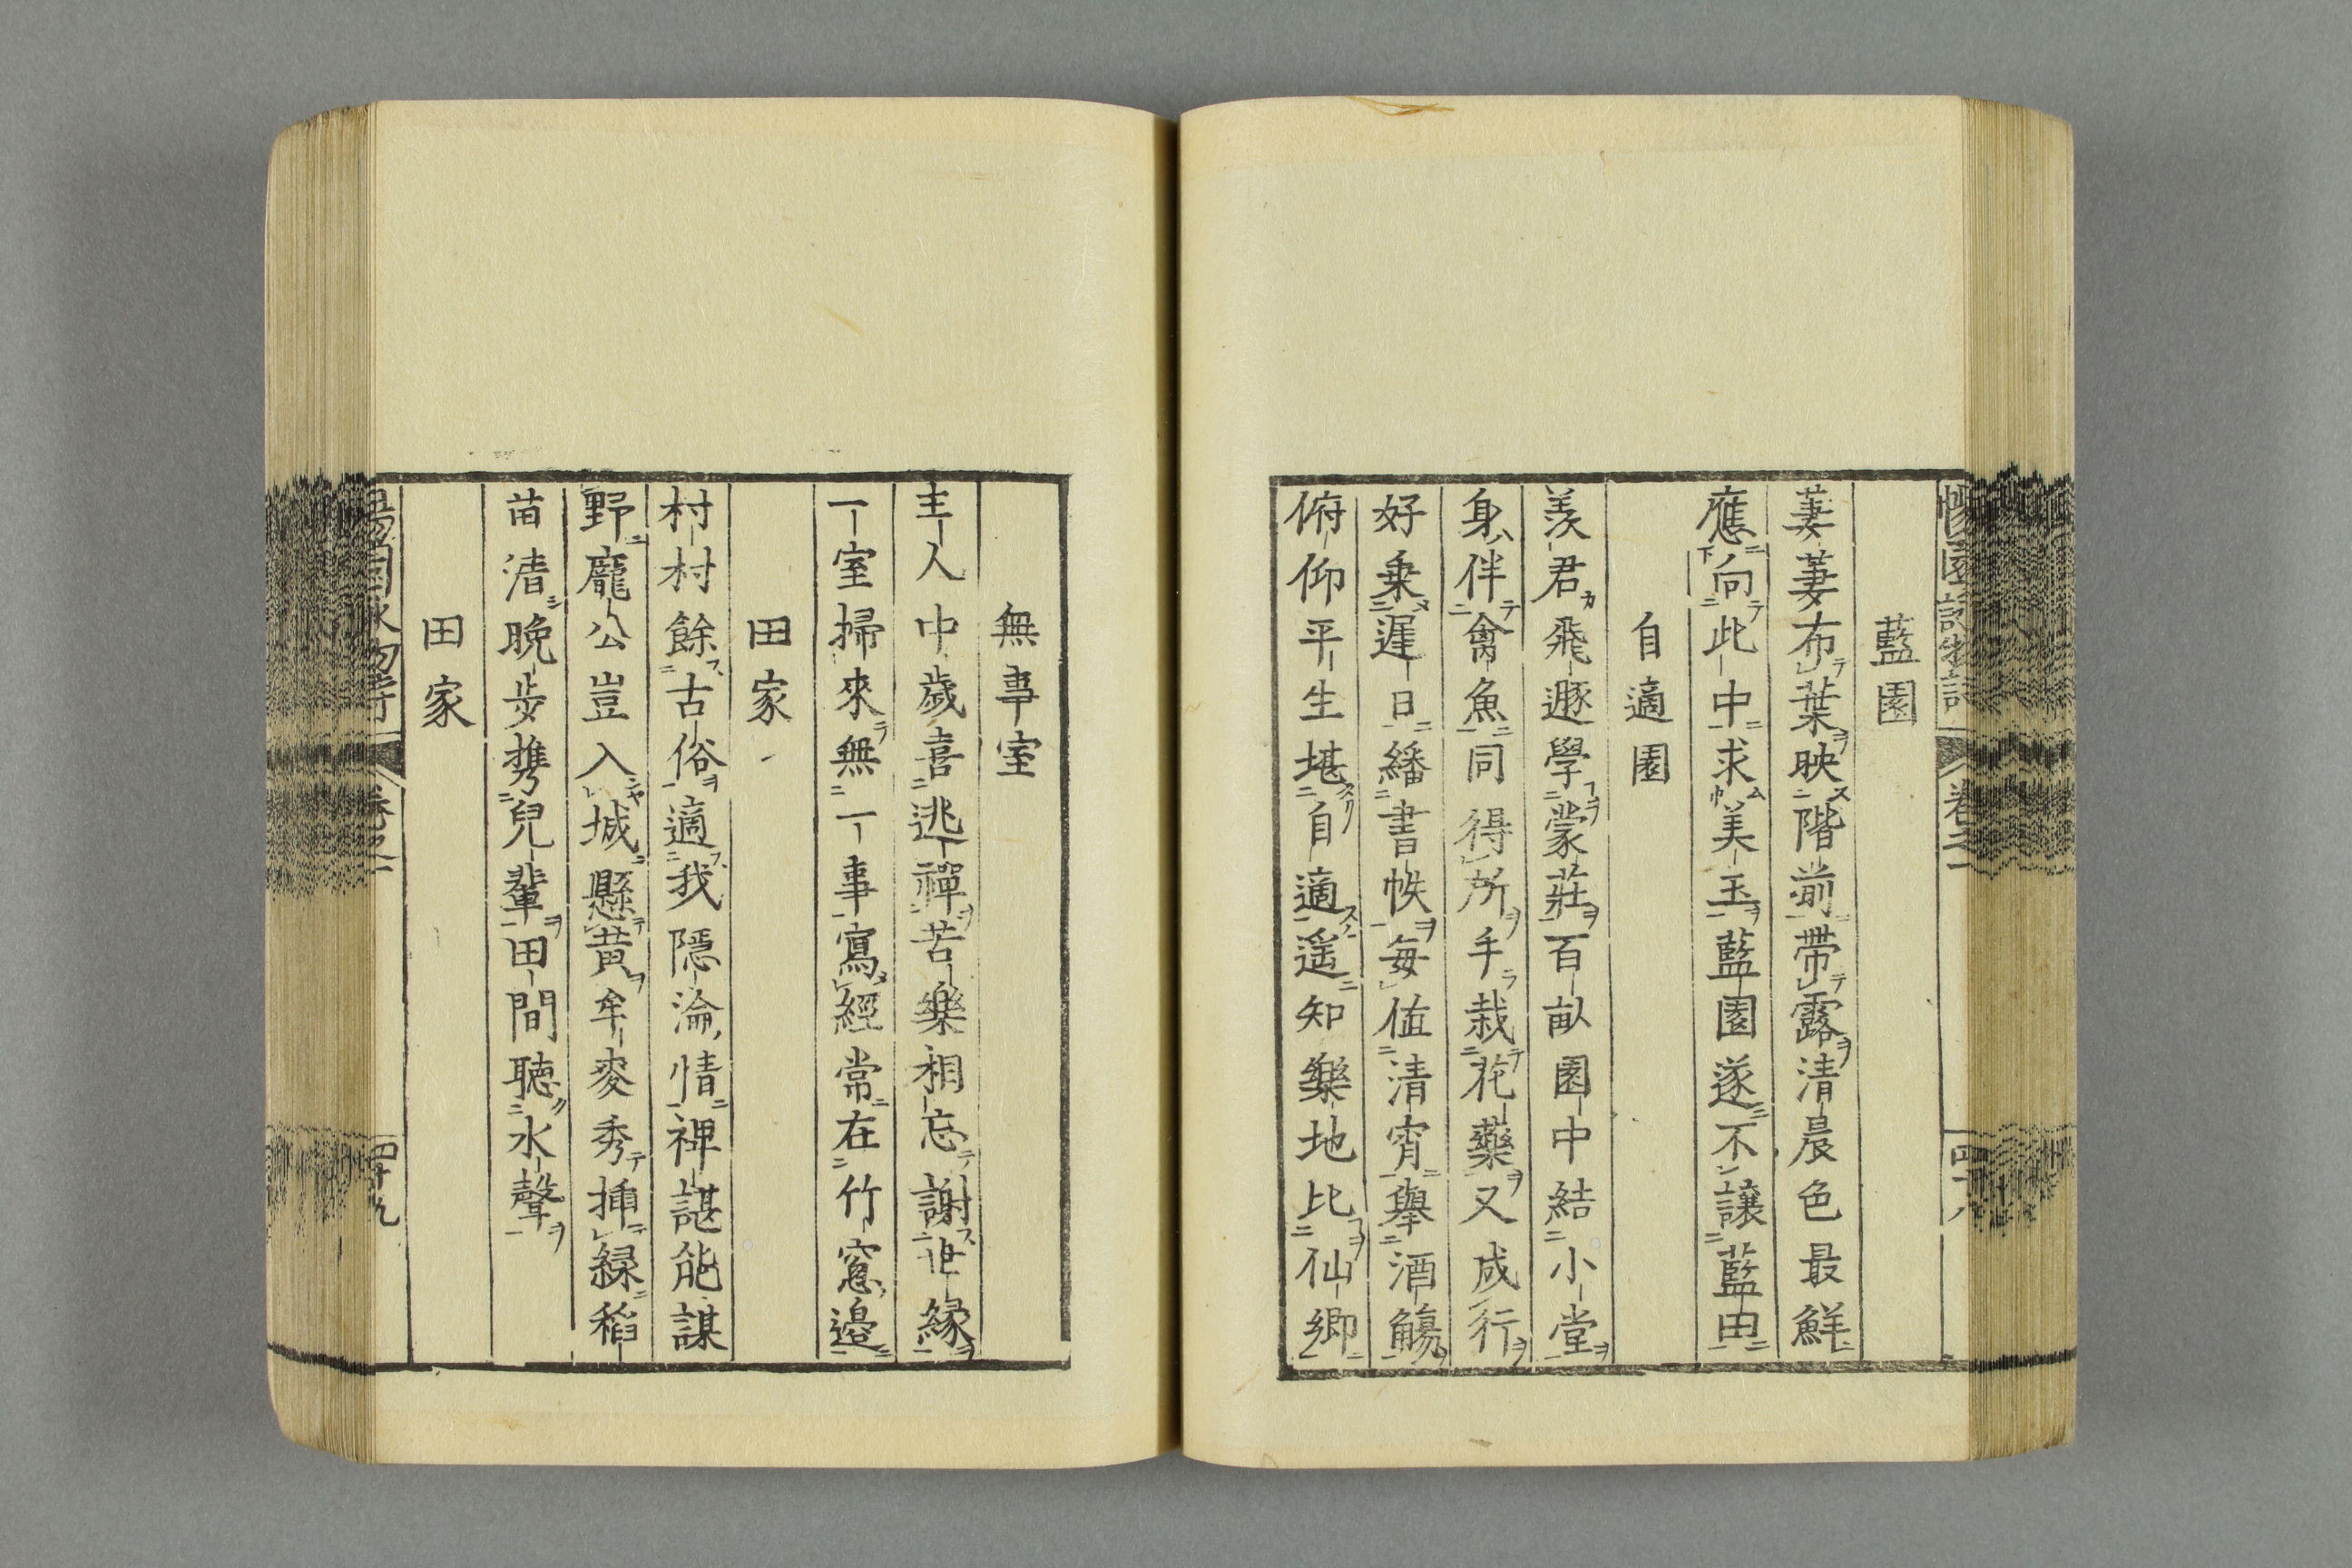 藍園
萋萋布葉映階前帶露清晨色最鮮
應向此中求美玉藍園遂不讓藍田
自適園
羨君飛遯學蒙莊百畝園中結小堂
身伴禽魚同得所手栽花藥又成行
好乘遲日繙書帙每值清宵舉酒觴
俯仰平生堪自適遥知樂地比仙鄉
無事室
主人中歲喜逃禪苦樂相忘謝世縁
一室掃來無一事寫經常在竹窓邉
田家
村村餘古俗適我隱淪情裨諶能謀
野龐公豈入城懸黄牟麥秀挿緑稻
苗淸晩步携兒輩田間聽水聲
田家
卷之一
四十九